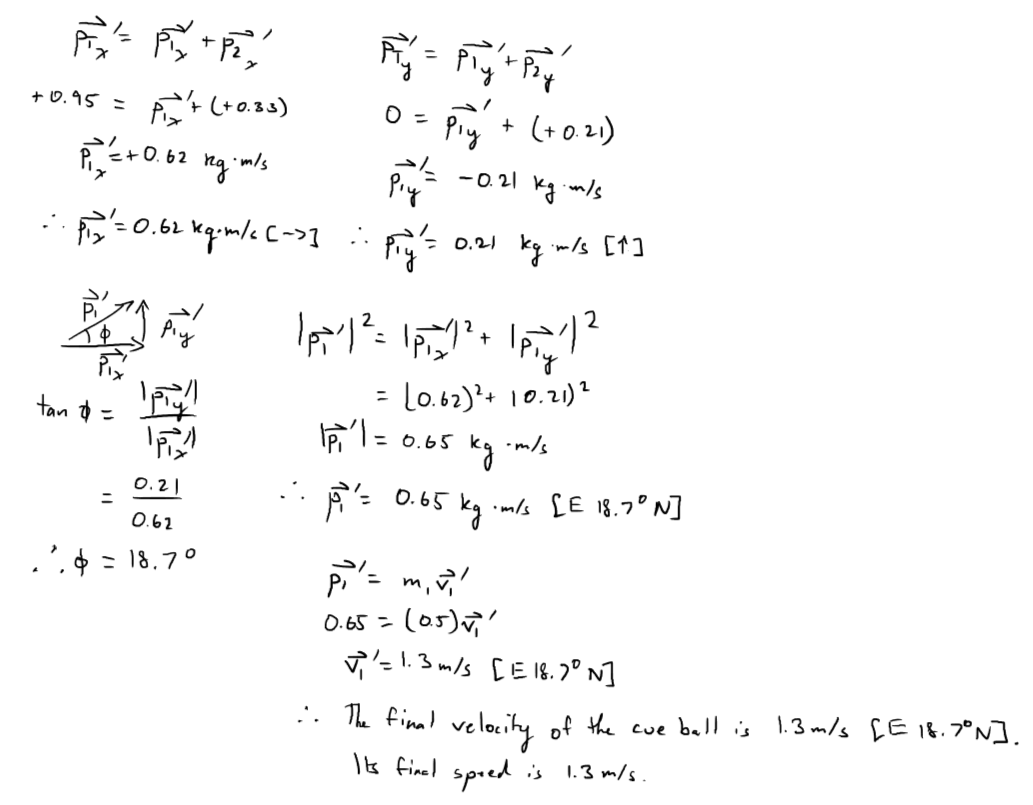 p⃗Tₓ' = p⃗1ₓ' + p⃗2ₓ'
+0.95 = p⃗1ₓ' + (+0.33)
p⃗1ₓ' = +0.62 kg·m/s
∴ p⃗1ₓ' = 0.62 kg·m/s [→]
p⃗Ty' = p⃗1y' + p⃗2y'
0 = p⃗1y' + (+0.21)
p⃗1y' = -0.21 kg·m/s
∴ p⃗1y' = 0.21 kg·m/s [↑]
p⃗1'
ϕ
p⃗1y'
p⃗1ₓ'
tan ϕ = |p⃗1y'| / |p⃗1ₓ'|
= 0.21 / 0.62
∴ ϕ = 18.7°
|p⃗1'|² = |p⃗1ₓ'|² + |p⃗1y'|²
= (0.62)² + (0.21)²
|p⃗1'| = 0.65 kg·m/s
∴ p⃗1' = 0.65 kg·m/s [E 18.7° N]
p⃗1' = m₁v⃗1'
0.65 = (0.5)v⃗1'
v⃗1' = 1.3 m/s [E 18.7° N]
∴ The final velocity of the cue ball is 1.3 m/s [E 18.7° N].
Its final speed is 1.3 m/s.